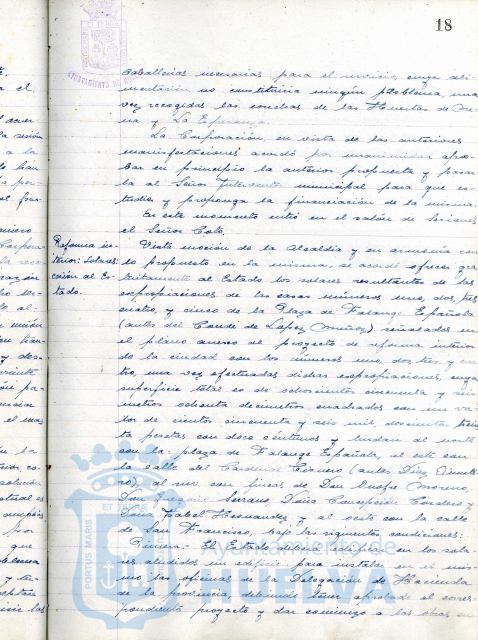 18
caballerias necesarias para el servicio, cuya ali-
mentación no constituiria ningún problema, una
vez recogidas las conchas de las Huertas de Me-
na y La Esperanza.
La Corporación, en vista de las anteriores
manifestaciones acordó por unanimidad apro-
bar en principio la anterior propuesta y pasar-
la al Señor Interventor municipal para que es-
tudie y proponga la financiación de la misma.
En este momento entró en el salón de sesiones
el Señor Coto.
Reforma in-
terior: Solares:
cesión al Es-
tado.
Vista moción de la Alcaldia y en armonia con
lo propuesto en la misma, se acordó ofrecer gra-
tuitamente al Estado los solares resultantes de las
expropiaciones de las casas números uno, dos, tres
cuatro, y cinco de la Plaza de Falange Española
(antes del Conde de Lopez Muñoz) señalados en
el plano anexo del proyecto de reforma interior
de la ciudad con los números uno, dos, tres, y cua-
tro, una vez efectuadas dichas expropiaciones, cuya
superficie total es de ochocientos cincuenta y seis
metros ochenta decimetros cuadrados con un va-
lor de ciento cincuenta y seis mil, doscientas trein-
ta pesetas con doce céntimos y lindan al norte
con la plaza de Falange Española, al este con
la calle del Cardenal Cisneros (antes Diaz
al sur con fincas de Don Onofre Moreno,
Don Gregorio Serrano, Doña Concepción Cordero y
Doña Isabel Hernandez y al oeste con la calle
de San Francisco, bajo las siguientes condiciones:
Primera.- El Estado deberá edificar en los sola-
res aludidos un edificio para instalar en el mis-
mo, las oficinas de la Delegación de Hacienda
de la provincia, debiendo tener aprobado el corres-
pondiente proyecto y dar comienzo a las obras en
Ayuntamiento de
HUELVA
PORTUS MARIS